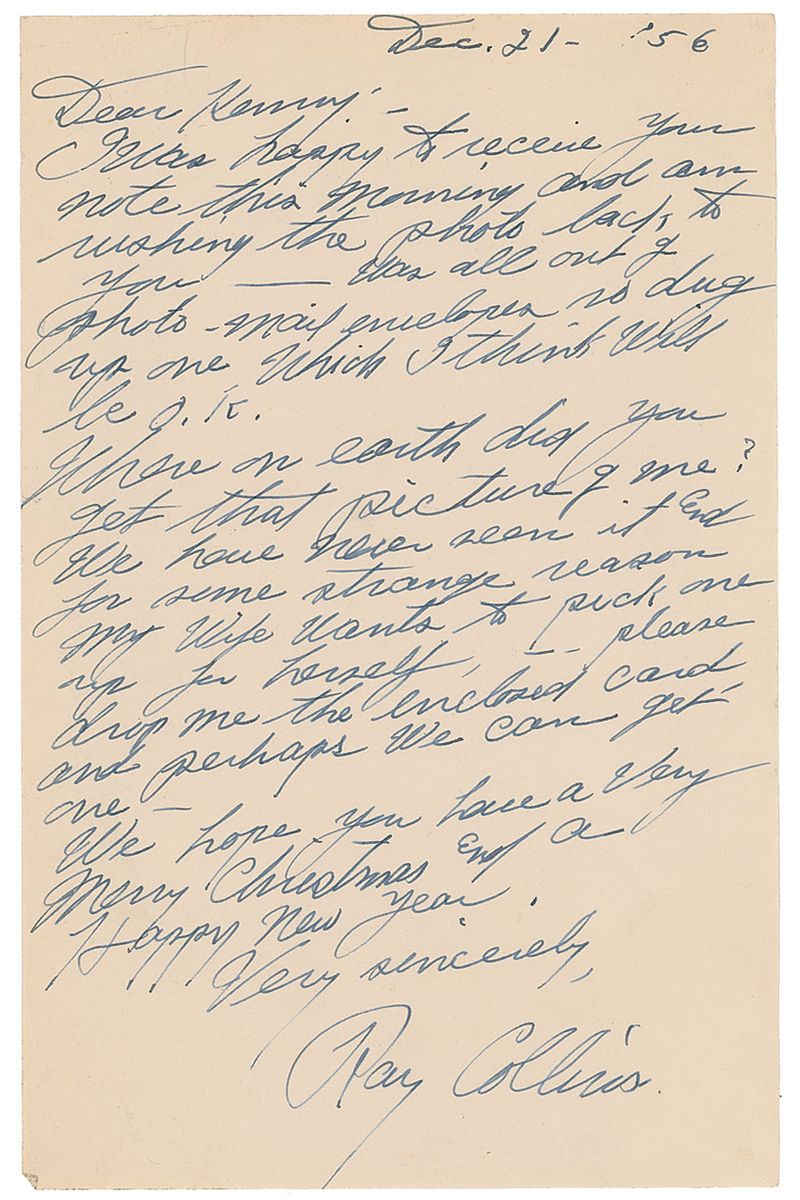 Dec. 21 - '56
Dear Kenny: -
I was happy to receive your
note this morning and am
rushing the photo back to
you — was all out of
photo-mail envelopes so dug
up one which I think will
be O.K.
Where on earth did you
get that picture of me?
We have never seen it End
for some strange reason
my wife wants to pick one
up for herself, -- please
drop me the enclosed card
and perhaps we can get
one -
We hope you have a very
Merry Christmas End a
Happy New Year.
Very sincerely,
Ray Collins.